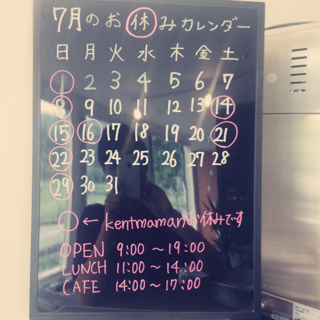 7月のお休みカレンダー
日 月 火 水 木 金 土
1 2 3 4 5 6 7
8 9 10 11 12 13 14
15 16 17 18 19 20 21
22 23 24 25 26 27 28
29 30 31
← kentmamanお休みです
OPEN 9:00 〜 19:00
LUNCH 11:00 〜 14:00
CAFE 14:00 〜 17:00